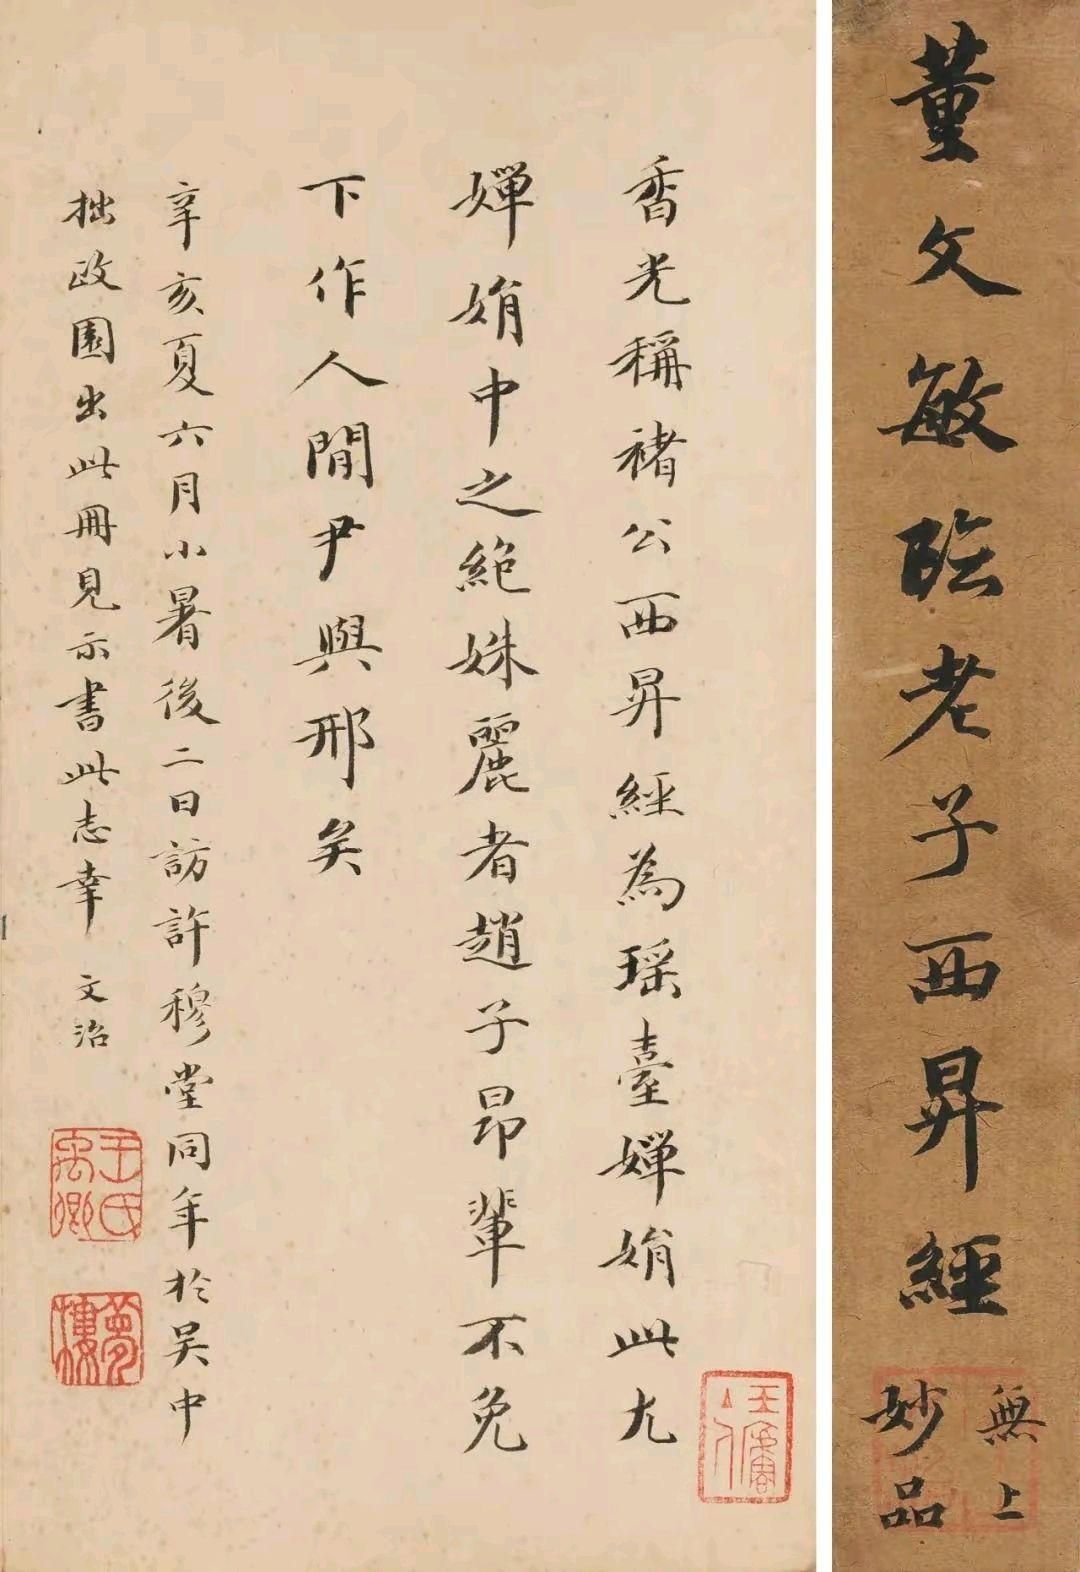 董文敏臨老子西昇經
無上
妙品
香光稱褚公西昇經為瑶臺嬋娟此尤
嬋娟中之絶姝麗者趙子昂輩不免
下作人間尹與邢矣
辛亥夏六月小暑後二日訪許穆堂同年於吴中
拙政園出此冊見示書此志幸 文治
王氏禹卿
夢樓